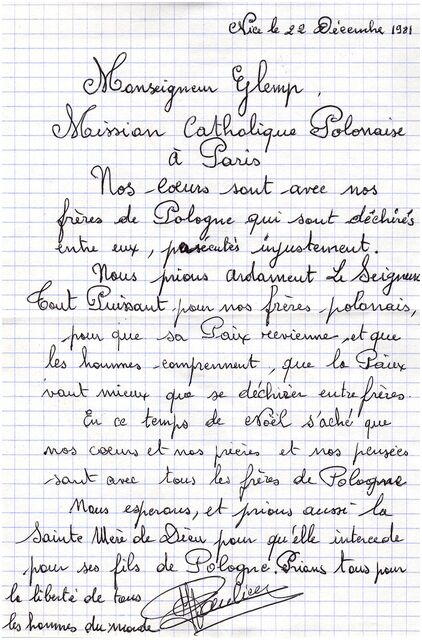 Nice le 22 Décembre 1981
Monseigneur Glemp,
Mission Catholique Polonaise
à Paris
Nos coeurs sont avec nos
frères de Pologne qui sont déchirés
entre eux, persécutés injustement.
Nous prions ardament Le Seigneur
Tout Puissant pour nos frères polonais,
pour que sa Paix revienne et que
les hommes comprennent, que la Paix
vaut mieux que se déchirer entre frères.
En ce temps de Noël s'aché que
nos coeurs et nos prières et nos pensées
sont avec tous les frères de Pologne
Nous esperons, et prions aussi la
Sainte Mère de Dieu pour qu'elle intercede
pour ses fils de Pologne. Prions tous pour
la liberté de tous
les hommes du monde